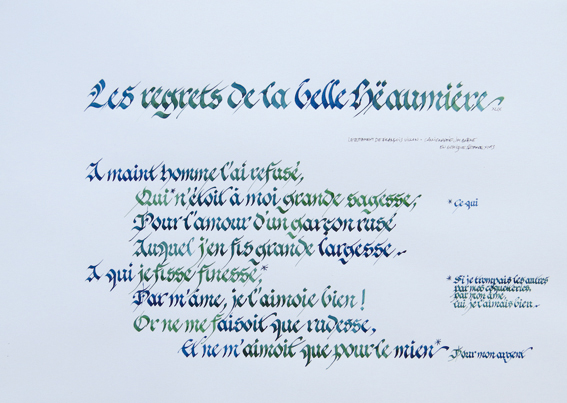 Les regrets de la belle Hëaumière
A maint homme l'ai refusé,
Qui* n'étoit à moi grande sagesse,
* Ce qui
Pour l'amour d'un garçon rusé
Auquel j'en fis grande largesse.
A qui je fisse finesse,*
* Si je trompais les autres
par mes coquetteries,
par mon âme,
lui, je l'aimais bien.
Par m'âme, je l'aimoie bien !
Or ne me faisoit que rudesse,
Et ne m'aimoit que pour le mien*
* Pour mon argent